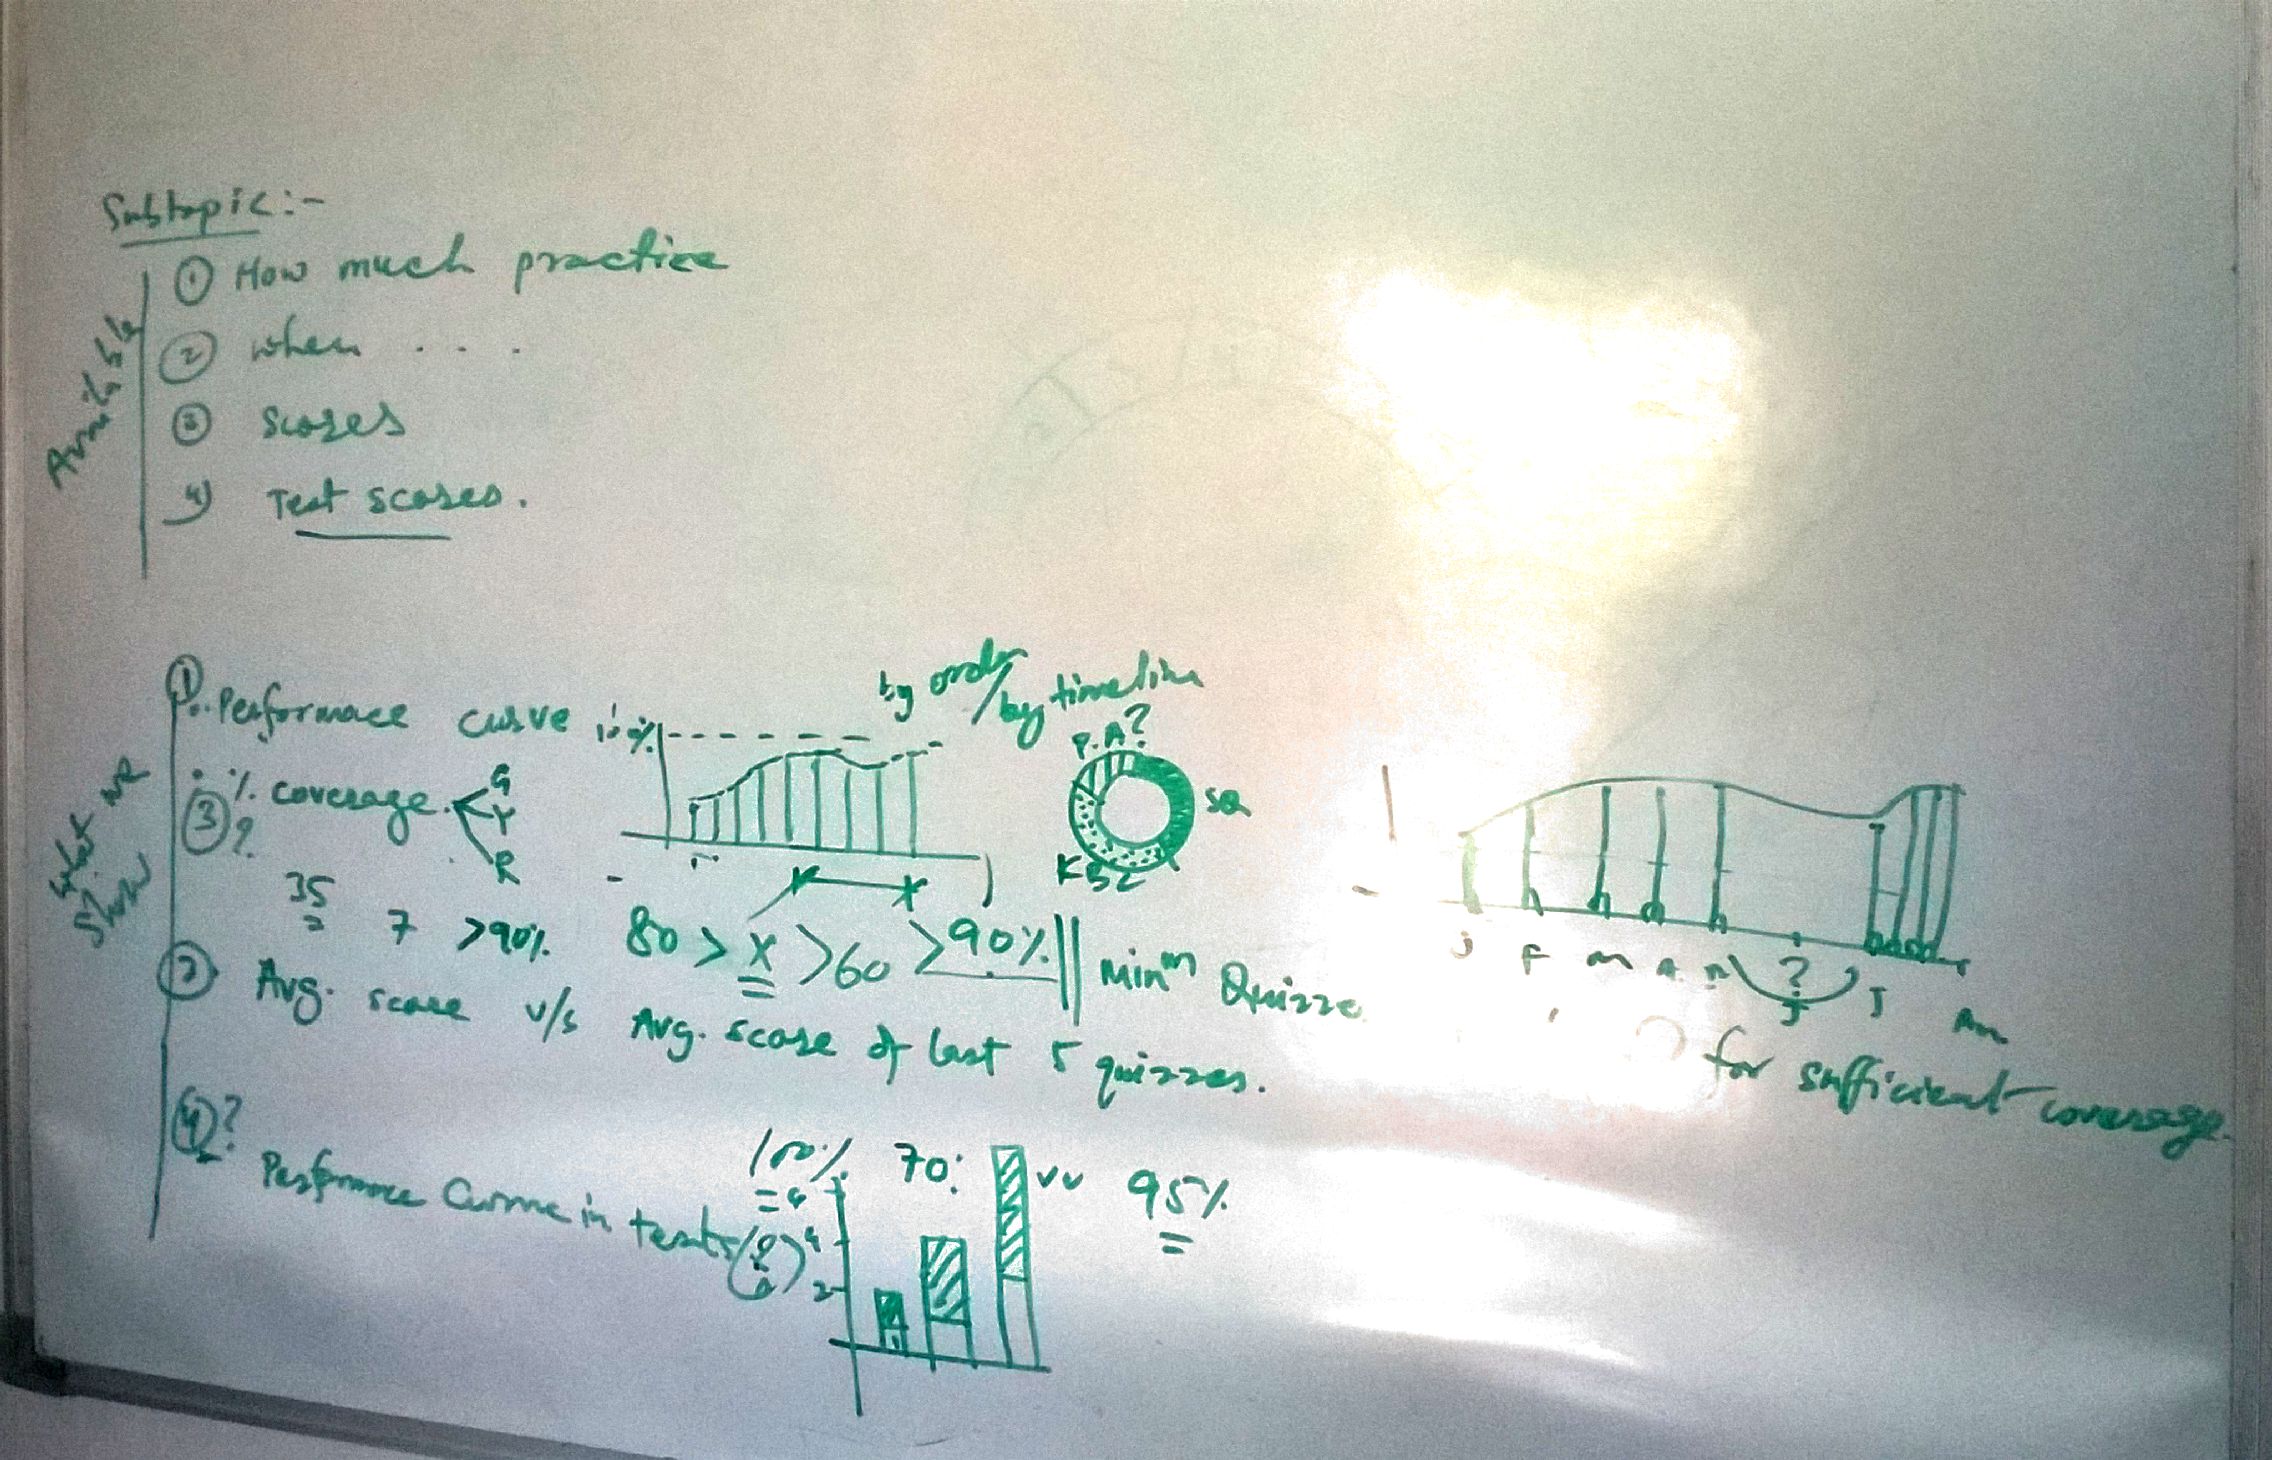 Subtopic:-
Available
① How much practice
② when ....
③ Scores
4) Test scores.
what we
show
①. Performace curve
100%
by order/by timeline
P.A?
SQ
KBC
③ % coverage. G
?
Y
R
35 7 >90%
80 > X > 60 > 90% || Minm Quizze
for sufficient coverage.
J F M A M ? J J
② Avg. score v/s Avg. score of last 5 quizzes.
④? Performance Curve in tests
100%
70:
95%
4
2